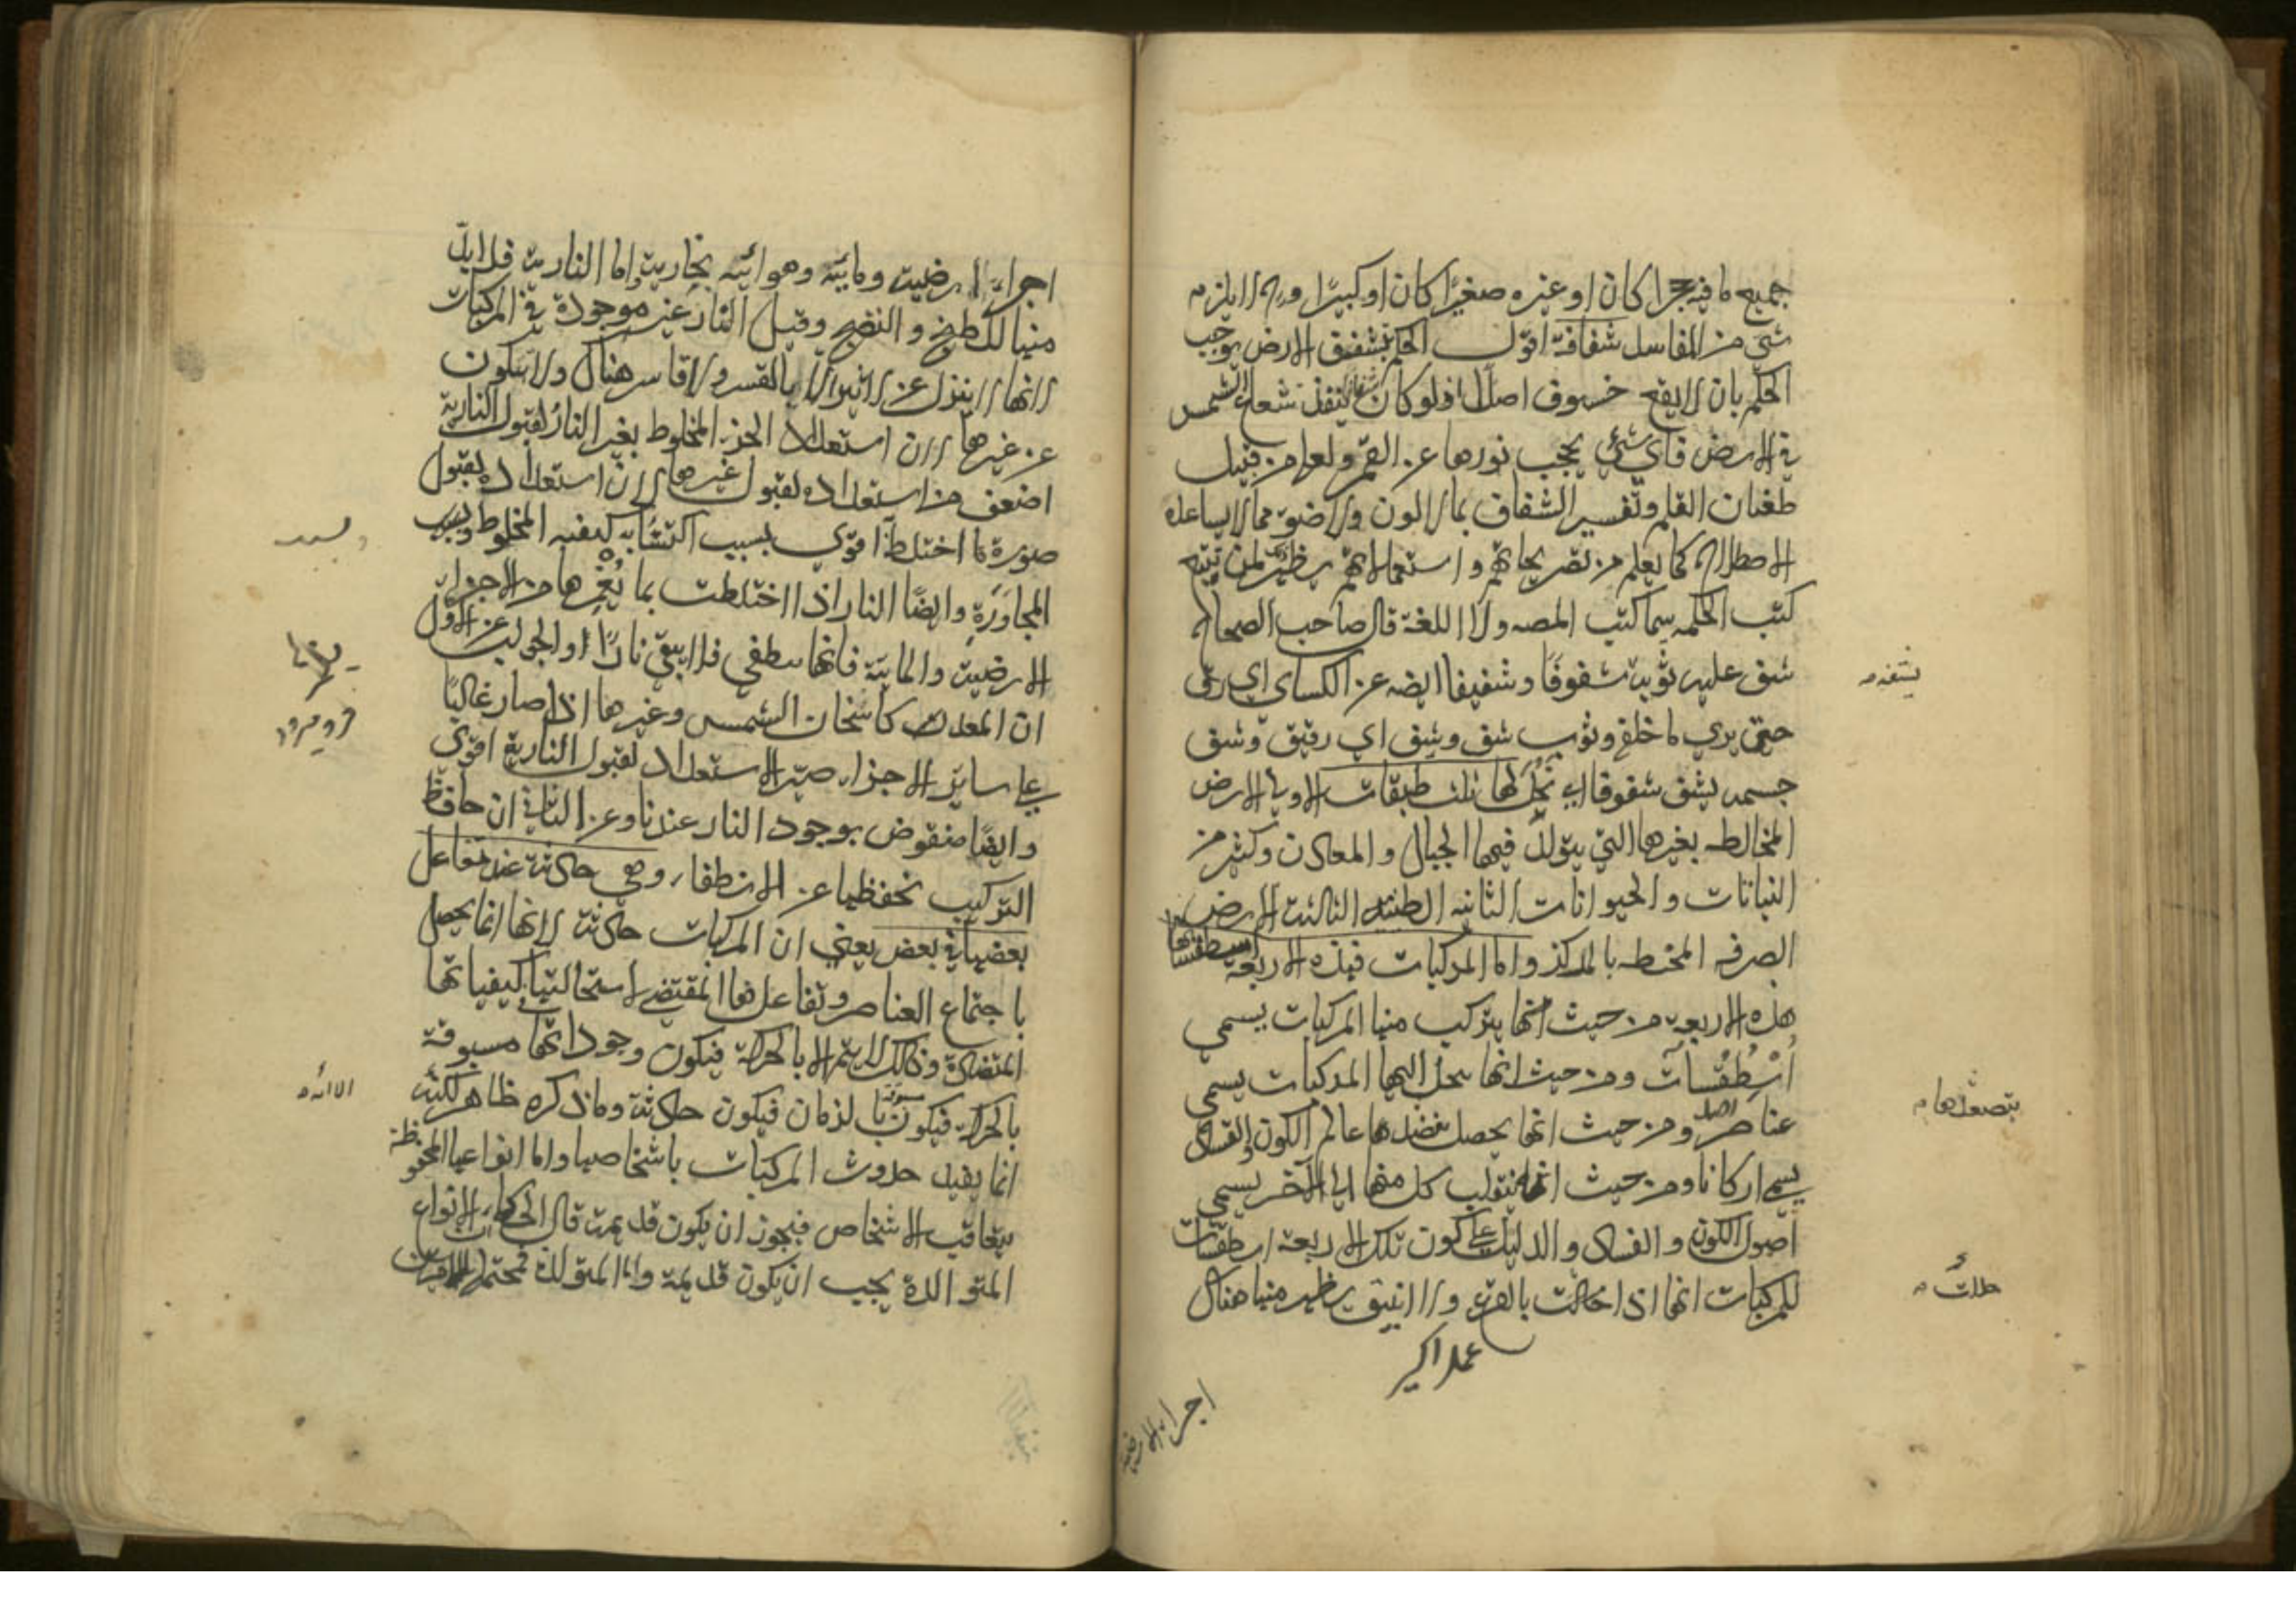 جميع ما فيه حجرا كان او غيره صغيرا كان او كبيرا وح لا يلزم
شئ من المفاسد شفافة اقول الحكم بشفيف الارض يوجب
الحكم بان لا يقع خسوف اصلا اذ لو كان شفافا لنفذ شعاع الشمس
في الارض فاي شئ يحجب نورها عن القمر ولعله من قبيل
طغيان القلم وتفسير الشفاف بما لا لون ولا ضوء مما لا يساعده
الاصطلاح كما يعلم من تصريحاتهم واستعمالاتهم يظهر لمن تتبع
كتب الحكمه سيما كتب المصه ولا اللغة قال صاحب الصحاح
شف عليه ثوبه شفوفا وشفيفا ايضه عن الكساي اي رق
حتى يري ما خلفه وثوب شف وشف اي رقيق وشف
جسمه يشف شفوفا اي نحل لها ثلث طبقات الاولي الارض
المخالطه بغيرها التي يتولد فيها الجبال والمعادن وكثير من
النباتات والحيوانات الثانيه الطينية الثالثة الارض
الصرفه المحيطه بالمركز واما المركبات فهذه الاربعة اسطقساتها
هذه الاربعة من حيث انها يتركب منها المركبات يسمى
اُسْطُقُسات ومن حيث انها ينحل اليها المركبات يسمى
عناصر ومن حيث انها يحصل بنضدها عالم الكون والفساد
يسمى اركانا ومن حيث انها ينقلب كل منها الى الآخر يسمى
اصول الكون والفساد والدليل على كون تلك الاربعة اسطقسات
للمركبات انها اذا حللت بالقرع والانبيق يظهر منها هناك
اجزاء ارضية
اجزاء ارضية ومائية وهوائية بخارية واما النارية فلا بد
منها للطبخ والنضج وقيل النار غير موجودة في المركبات
لانها لا ينزل عن الاثير الا بالقسر ولا قاسر هناك ولا يتكون
عن غيرها لان استعداد الجزء المخلوط بغير النار لقبول النارية
اضعف من استعداده لقبول غيرها لان استعداده لقبول
صورة ما اختلط اقوي بسبب اكتسابه كيفيه المخلوط وبسبب
المجاورة وايضا النار اذا اختلطت بما يغمرها من الاجزاء
الارضية والمائية فانها ينطفي فلا يبقى نارا والجواب عن الاول
ان المعد كاسخان الشمس وغيرها اذا صار غالبا
على ساير الاجزاء صير الاستعداد لقبول النارية اقوي
وايضا منقوض بوجود النار عندنا وعن الثاني ان حافظ
التركيب يحفظها عن الانطفاء وهي حادثة عند تفاعل
بعضها في بعض يعني ان المركبات حادثة لانها انما يحصل
باجتماع العناصر وتفاعلها المقتضي لاستحالتها في كيفياتها
المتضادة وذلك لا يتم الا بالحركة فيكون وجوداتها مسبوقة
بالحركة فيكون مسبوقة بالزمان فيكون حادثة وما ذكره ظاهر لكنه
انما يفيد حدوث المركبات باشخاصها واما انواعها المحفوظة
بتعاقب الاشخاص فيجوز ان يكون قديمة قال الحكماء الانواع
المتوالدة يجب ان يكون قديمة واما المتولدة فمحتمل للامرين